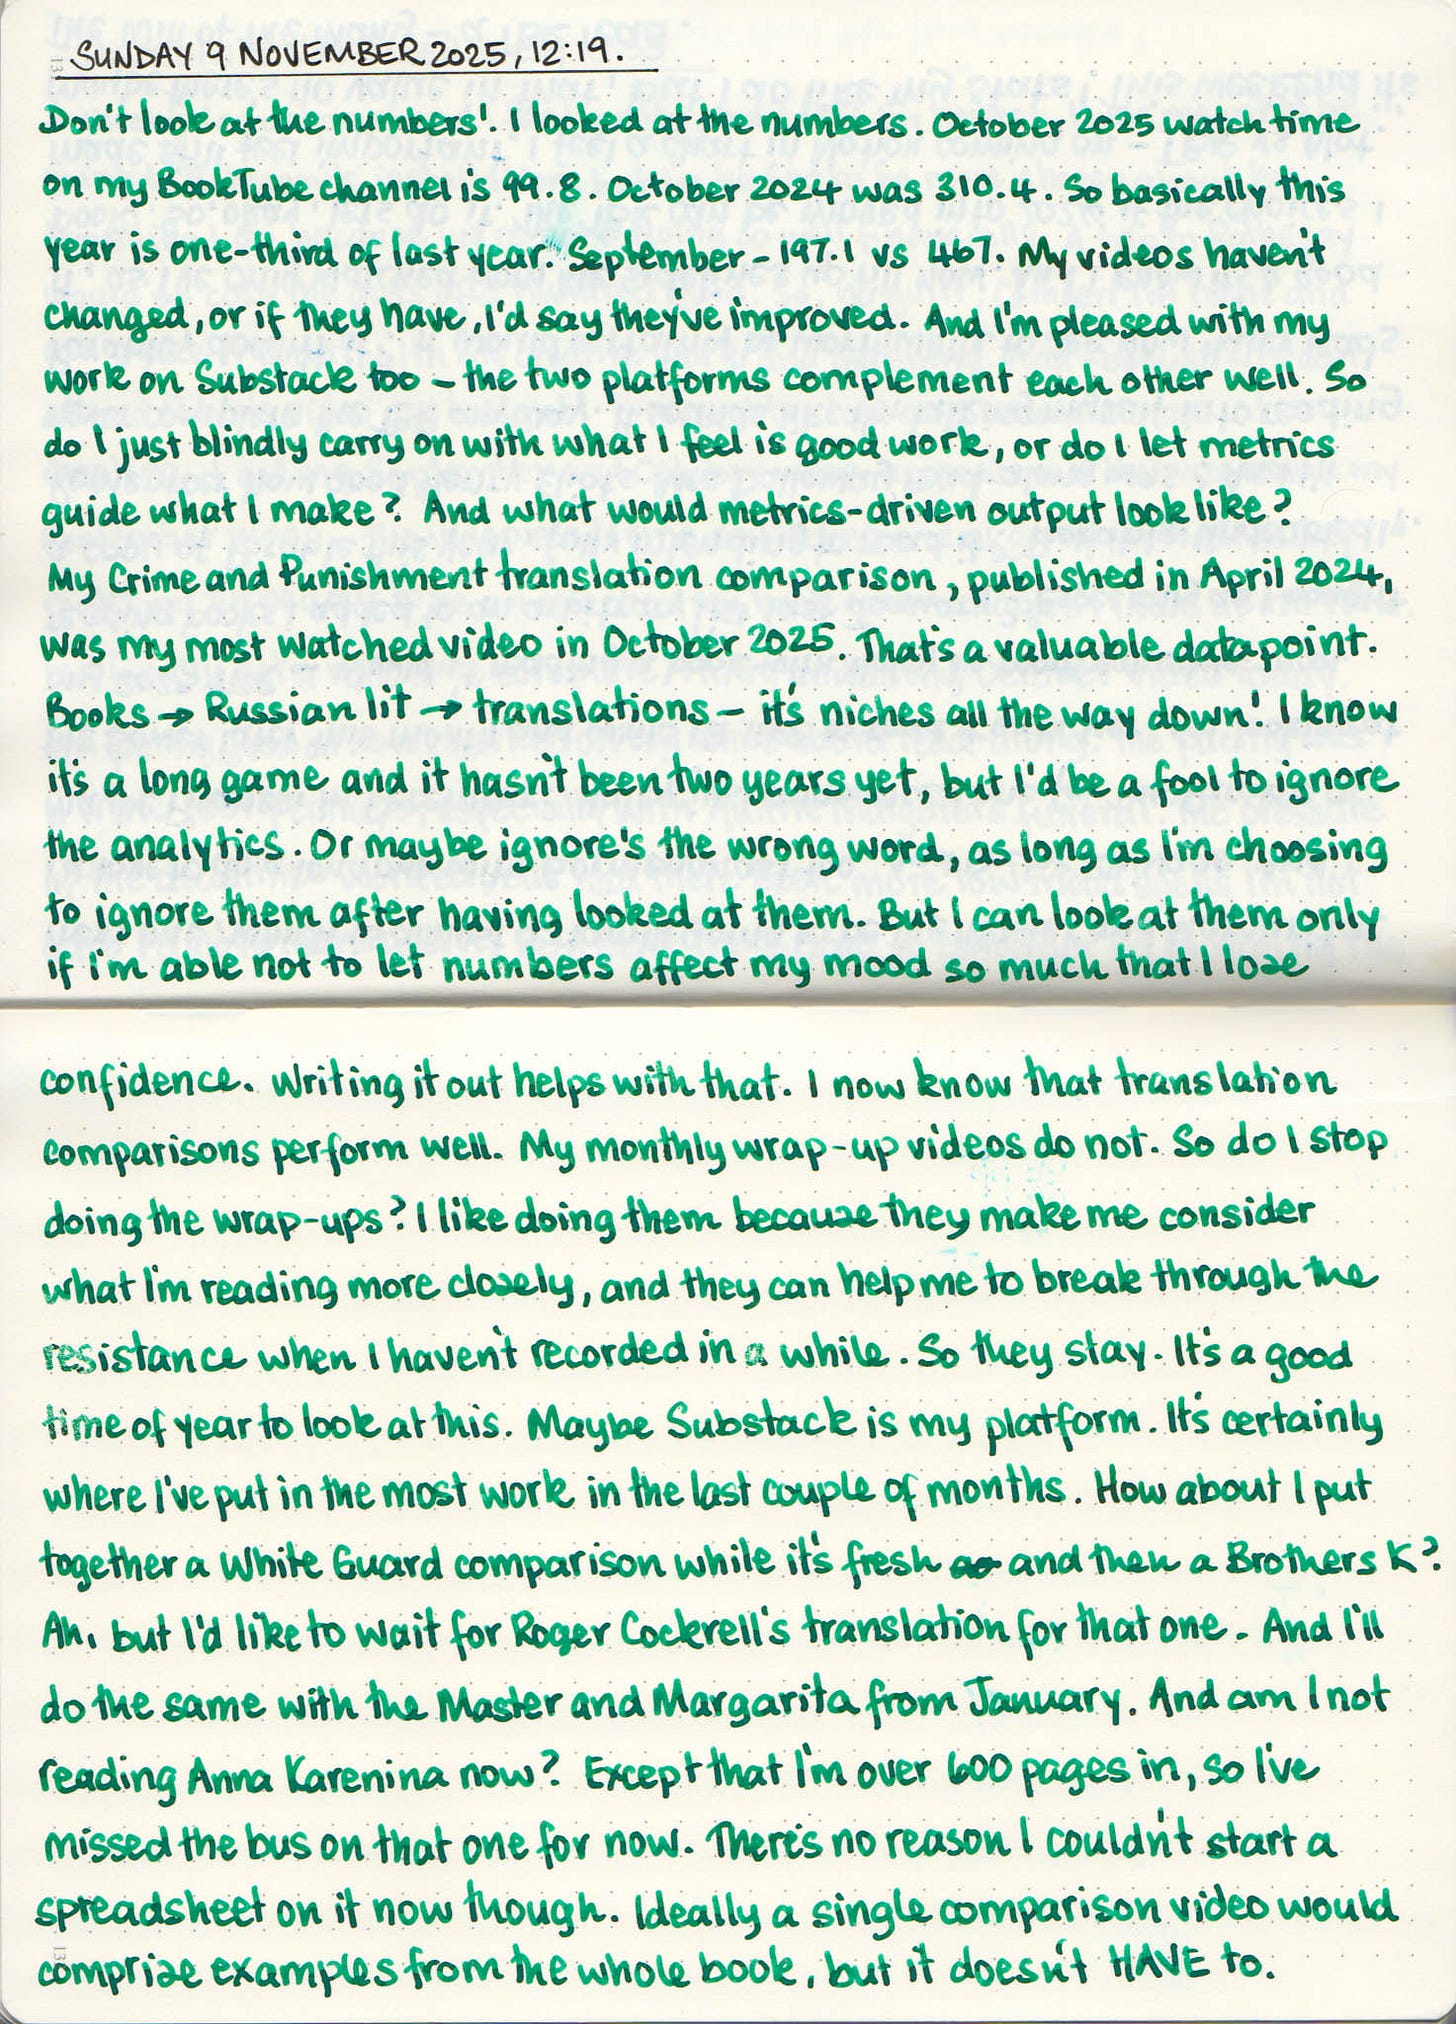 SUNDAY 9 NOVEMBER 2025, 12:19.
Don't look at the numbers! I looked at the numbers. October 2025 watch time
on my BookTube channel is 99.8. October 2024 was 310.4. So basically this
year is one-third of last year. September - 197.1 vs 467. My videos haven't
changed, or if they have, I'd say they've improved. And I'm pleased with my
work on Substack too - the two platforms complement each other well. So
do I just blindly carry on with what I feel is good work, or do I let metrics
guide what I make? And what would metrics-driven output look like?
My Crime and Punishment translation comparison, published in April 2024,
was my most watched video in October 2025. That's a valuable datapoint.
Books → Russian lit → translations - it's niches all the way down! I know
it's a long game and it hasn't been two years yet, but I'd be a fool to ignore
the analytics. Or maybe ignore's the wrong word, as long as I'm choosing
to ignore them after having looked at them. But I can look at them only
if I'm able not to let numbers affect my mood so much that I lose
confidence. Writing it out helps with that. I now know that translation
comparisons perform well. My monthly wrap-up videos do not. So do I stop
doing the wrap-ups? I like doing them because they make me consider
what I'm reading more closely, and they can help me to break through the
resistance when I haven't recorded in a while. So they stay. It's a good
time of year to look at this. Maybe Substack is my platform. It's certainly
where I've put in the most work in the last couple of months. How about I put
together a White Guard comparison while it's fresh and then a Brothers K?
Ah, but I'd like to wait for Roger Cockrell's translation for that one. And I'll
do the same with the Master and Margarita from January. And am I not
reading Anna Karenina now? Except that I'm over 600 pages in, so I've
missed the bus on that one for now. There's no reason I couldn't start a
spreadsheet on it now though. Ideally a single comparison video would
comprise examples from the whole book, but it doesn't HAVE to.